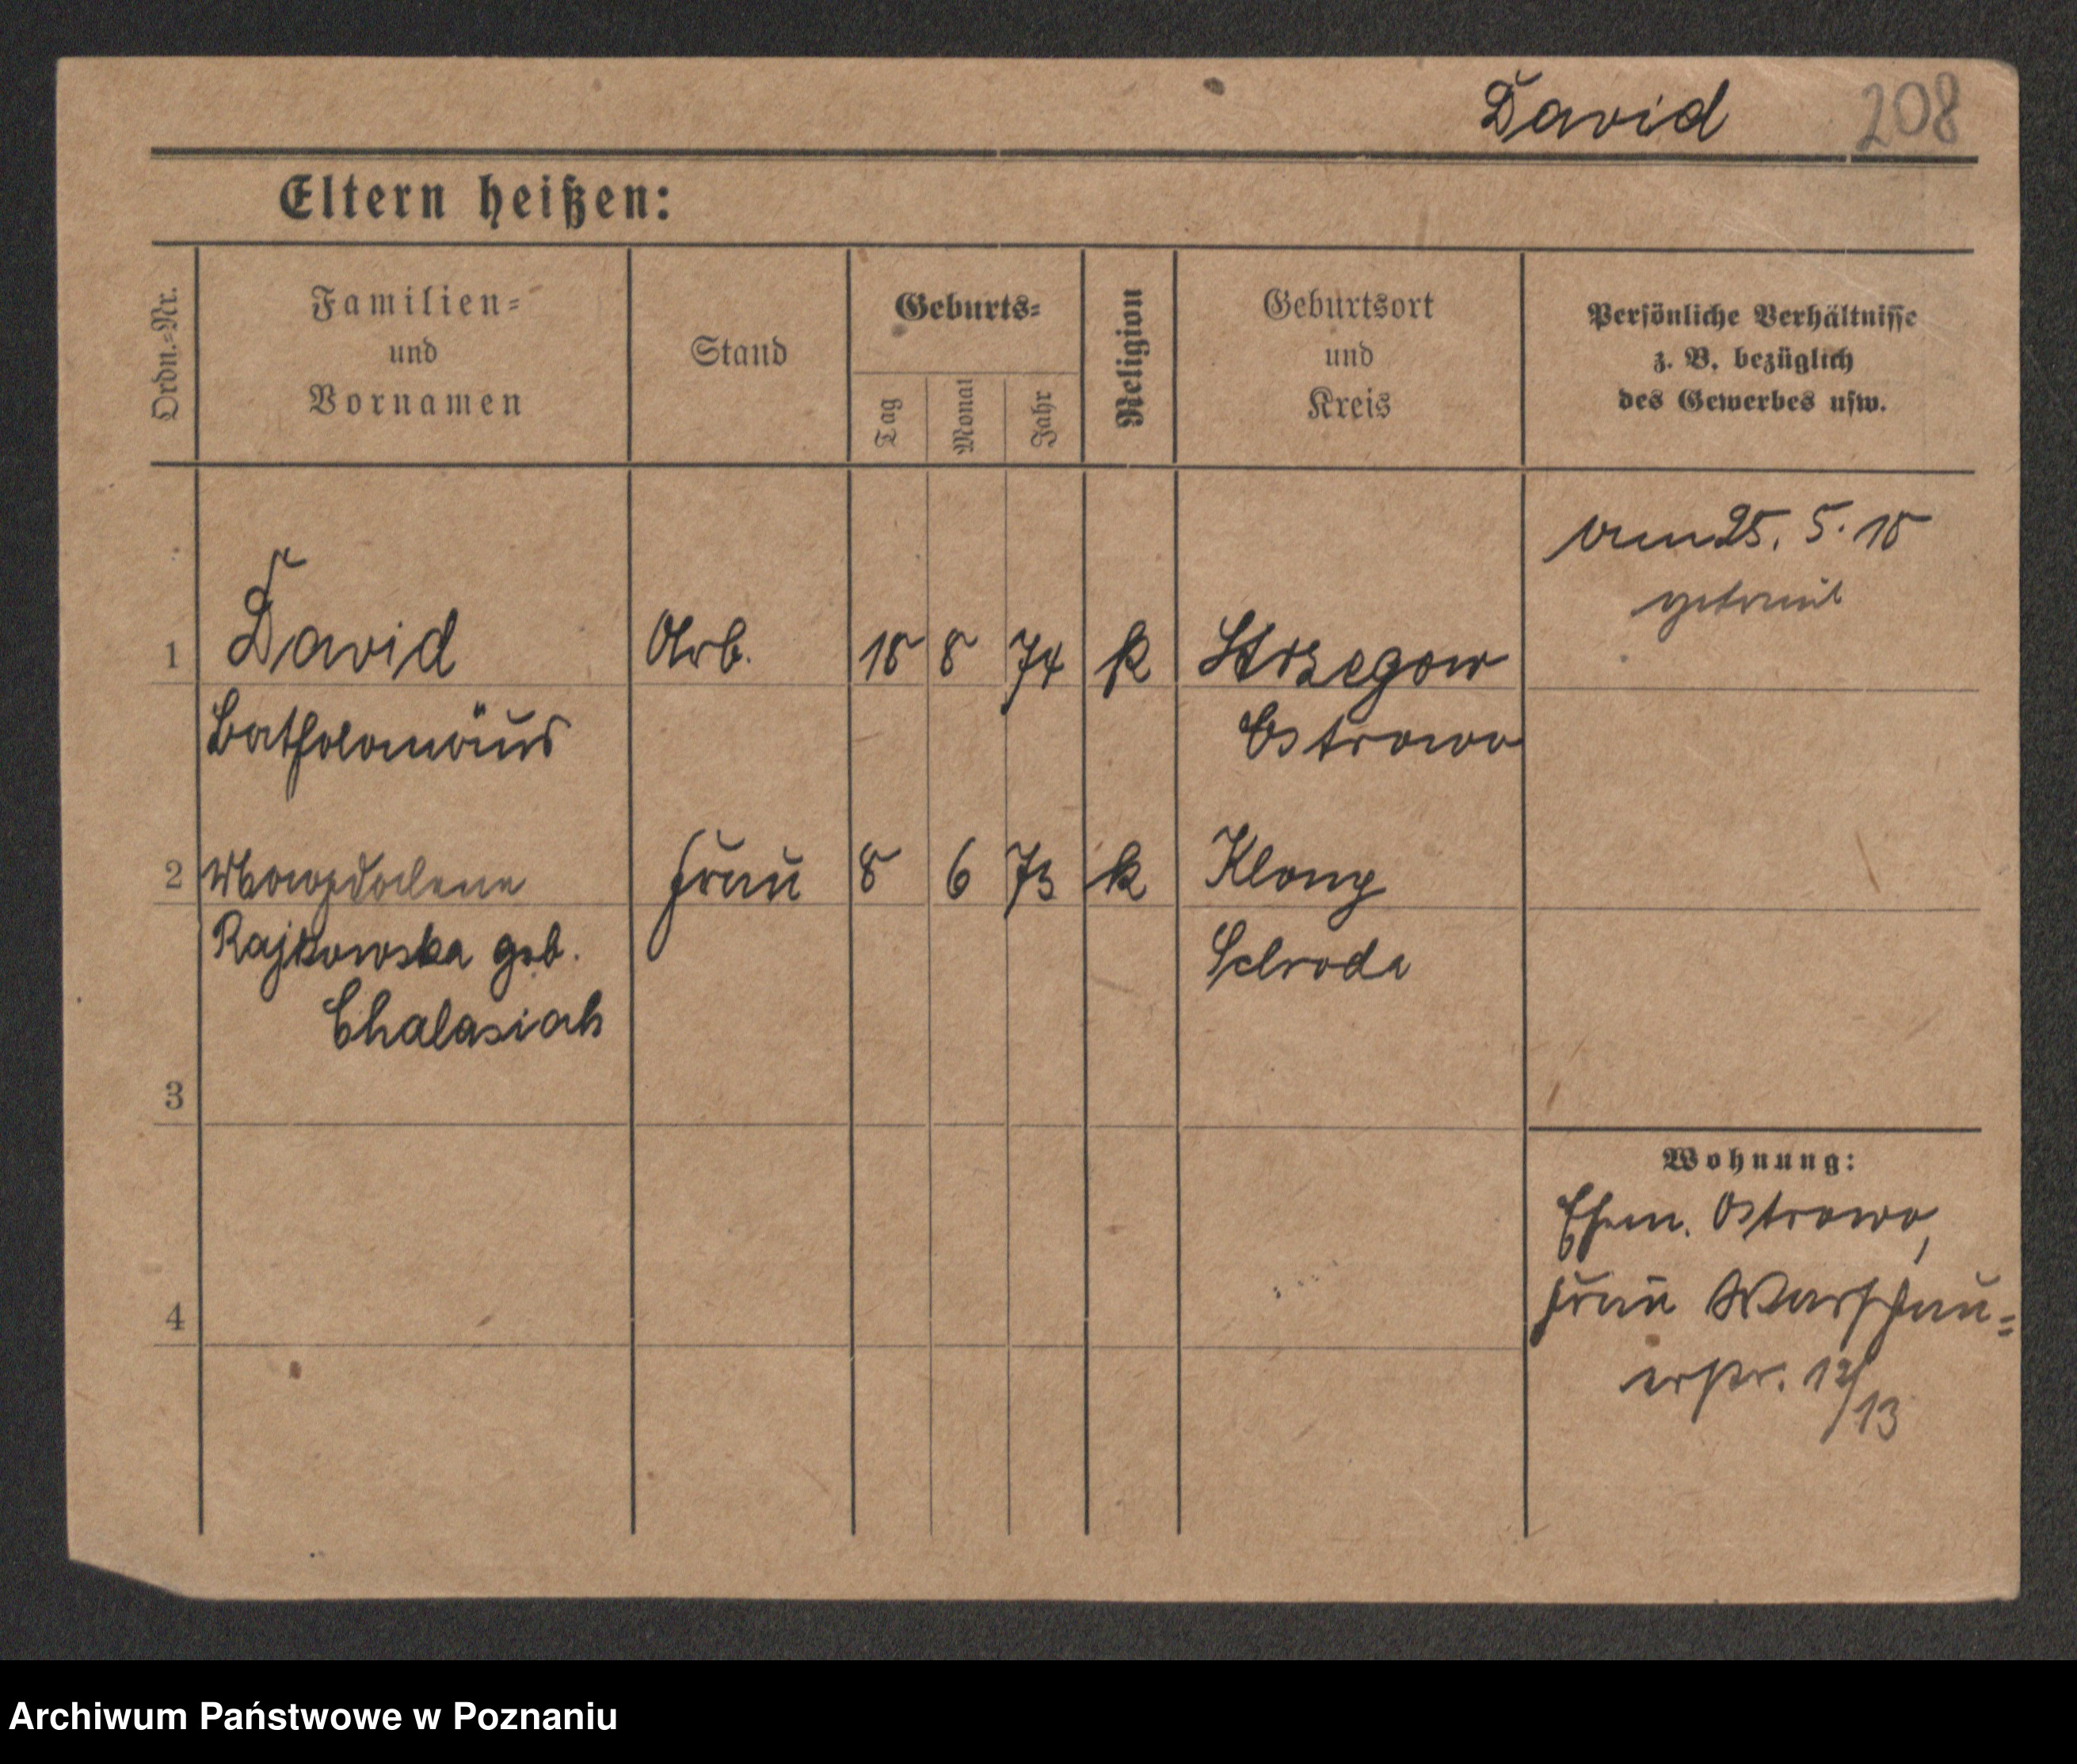 David 208
Eltern heißen:
Ordn.-Nr.
Familien-
und
Vornamen
Stand
Geburts-
Tag
Monat
Jahr
Religion
Geburtsort
und
Kreis
Persönliche Verhältnisse
z. B. bezüglich
des Gewerbes usw.
am 25. 5. 18
getraut
1 David Arb. 18 8 74 k Strzegow
Bartholomäus Ostrowo
2 Magdalena Frau 8 6 73 k Klony
Rajkowska geb. Schroda
Chalasiak
3
Wohnung:
Ehem. Ostrowo,
4 Frau Warschau-
erstr. 12/13
Archiwum Państwowe w Poznaniu